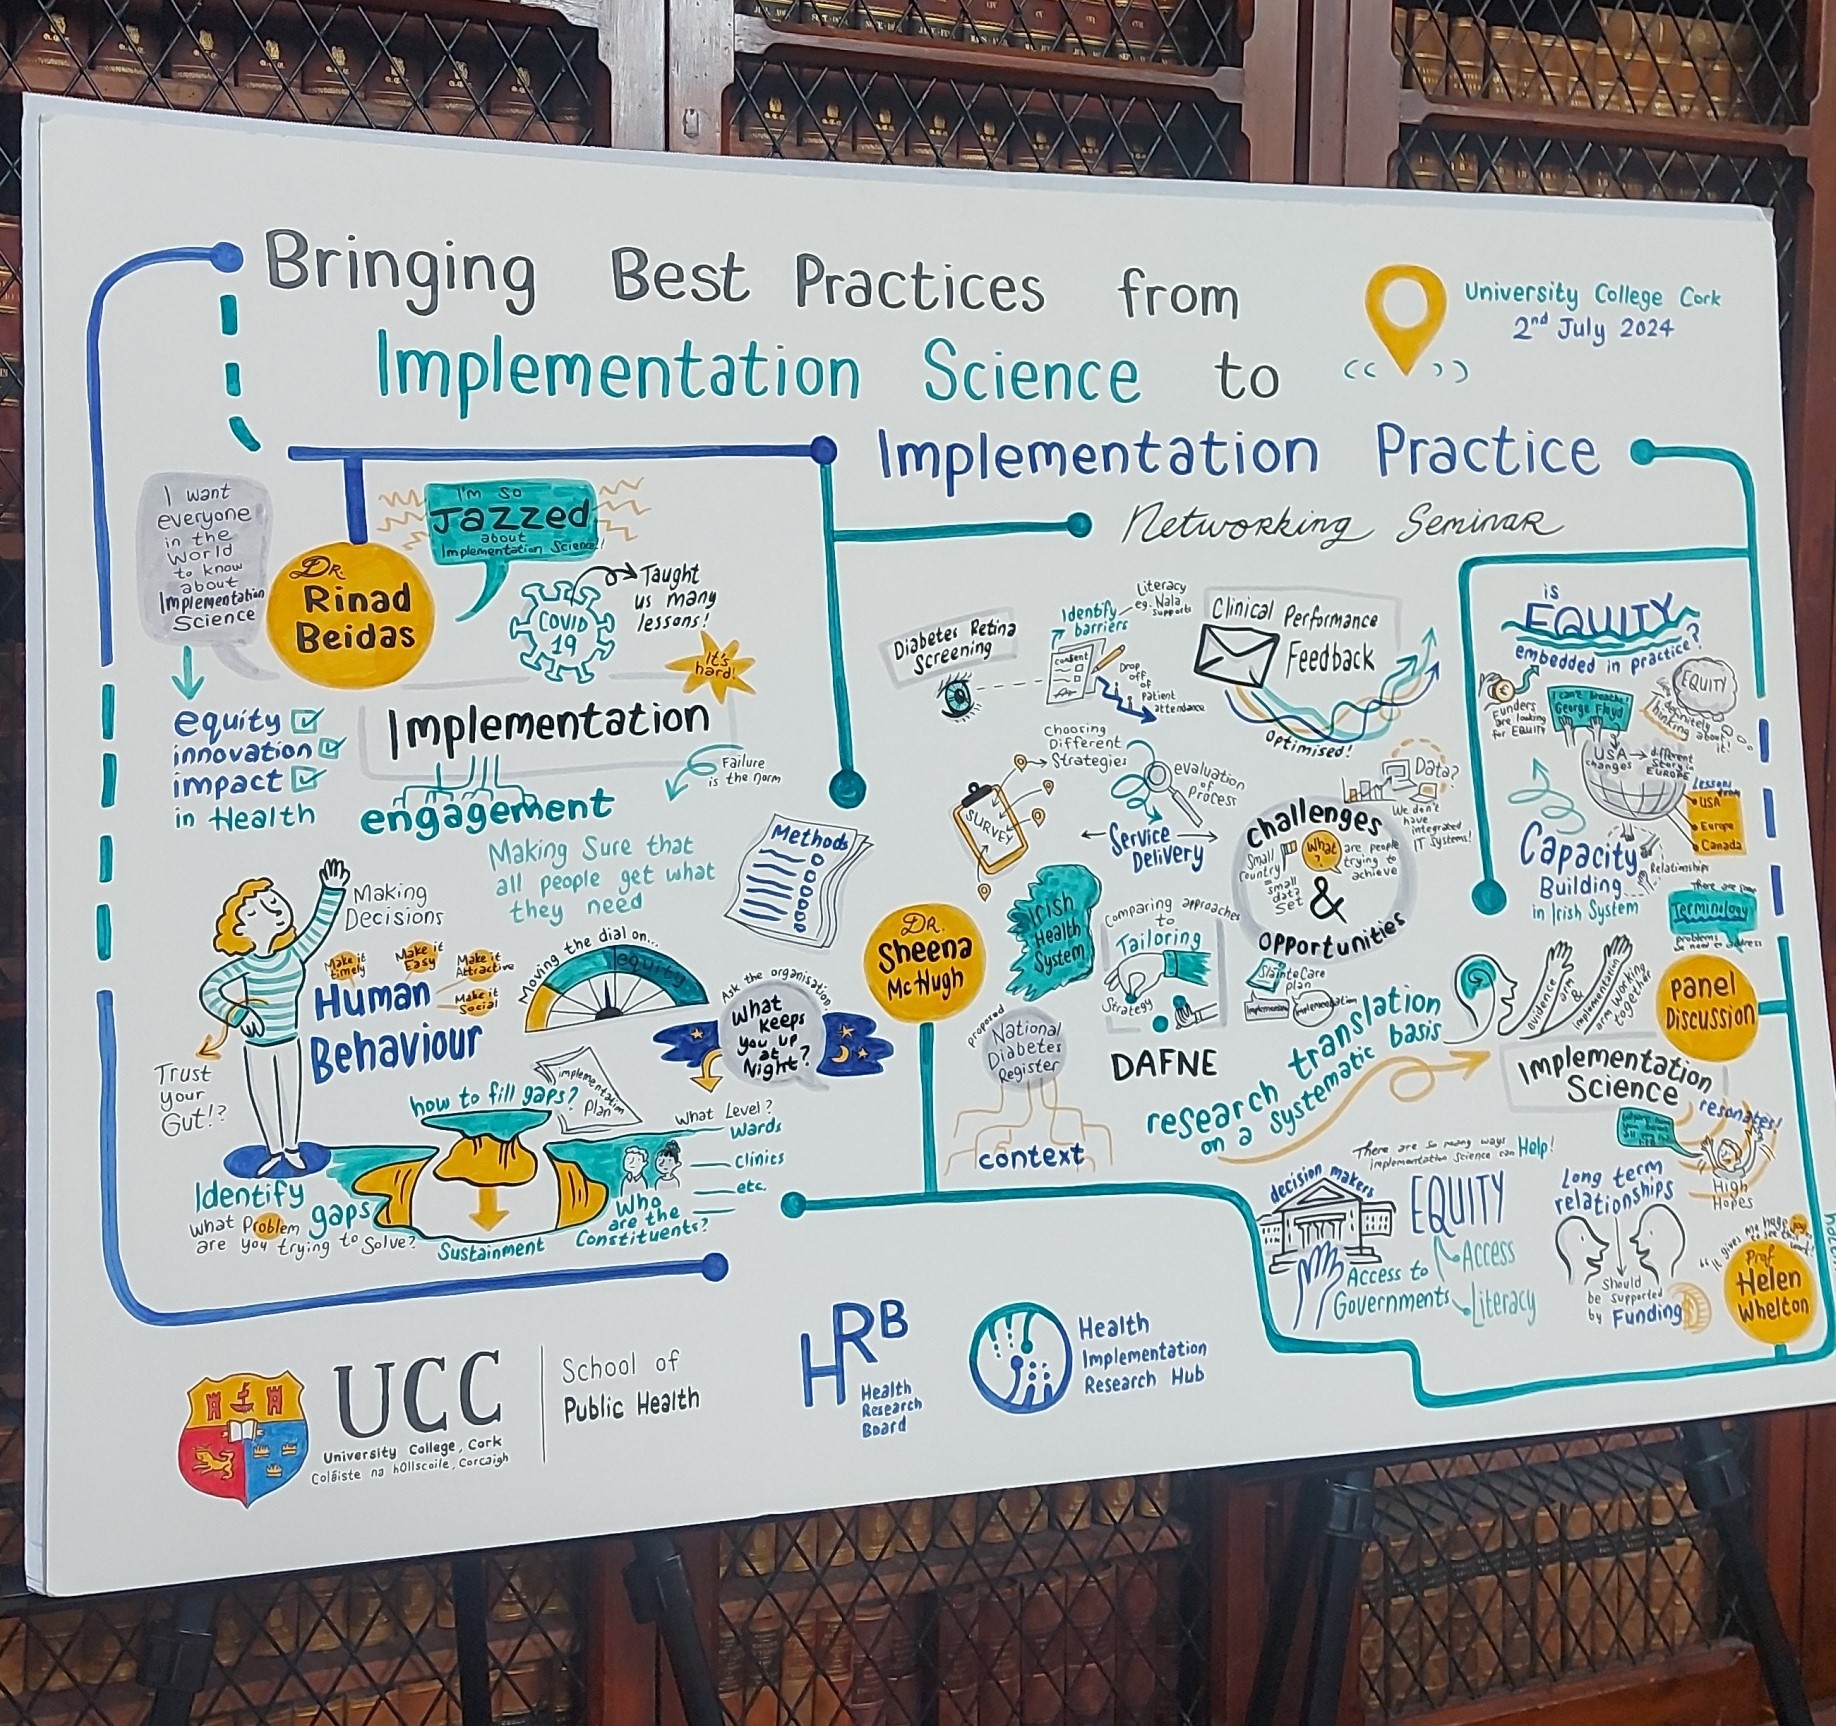 Bringing Best Practices from
Implementation Science to
Implementation Practice
Networking Seminar
University College Cork
2nd July 2024
I want
everyone
in the
World
to know
about
Implementation
Science
equity
innovation
impact
in Health
Dr.
Rinad
Beidas
I'm so
Jazzed
about
Implementation Science!
COVID
19
Taught
us many
lessons!
It's
hard!
Implementation
engagement
Failure
is the norm
Making Sure that
all people get what
they need
Methods
Making
Decisions
Make it
timely
Make it
Easy
Make it
Attractive
Make it
Social
Human
Behaviour
Trust
your
Gut!?
Moving the dial on...
equity
Ask the organisation
What
keeps
you up
at
Night?
how to fill gaps?
implementation
Plan
What Level?
Wards
Clinics
etc.
Identify
gaps
What Problem
are you trying to Solve?
Sustainment
Who
are the
Constituents?
Dr.
Sheena
McHugh
Diabetes Retina
Screening
Identify
barriers
Literacy
eg. Nala
supports
consent
Drop
off
of
Patient
attendance
Clinical Performance
Feedback
Optimised!
Choosing
Different
Strategies
SURVEY
evaluation
of
Process
Service
Delivery
Irish
Health
System
Comparing approaches
to
Tailoring
Strategy
DAFNE
Proposed
National
Diabetes
Register
context
Challenges
&
Opportunities
Small
Country!
=
small
data
Set
What
?
are people
trying to
achieve
Data?
We don't
have
integrated
IT Systems!
SlainteCare
plan
research translation
on a systematic basis
evidence
arm
&
implementation
arm working
together
is
EQUITY
embedded in practice?
Funders
are looking
for EQUITY
I can't breathe!
George Floyd
EQUITY
definitely
thinking about
it!
USA
changes
different
Story in
EUROPE
Lessons
from
USA
Europe
Canada
Capacity
Building
in Irish System
Relationships
Terminology
Problems
we need to address
Panel
Discussion
Implementation
Science
resonates!
High
Hopes
There are so many ways
Implementation Science can Help!
decision makers
EQUITY
Access
Literacy
Access to
Governments
Long term
relationships
Should
be supported
by Funding
Prof
Helen
Whelton
UCC
University College, Cork
Coláiste na hOllscoile, Corcaigh
School of
Public Health
HRB
Health
Research
Board
Health
Implementation
Research Hub